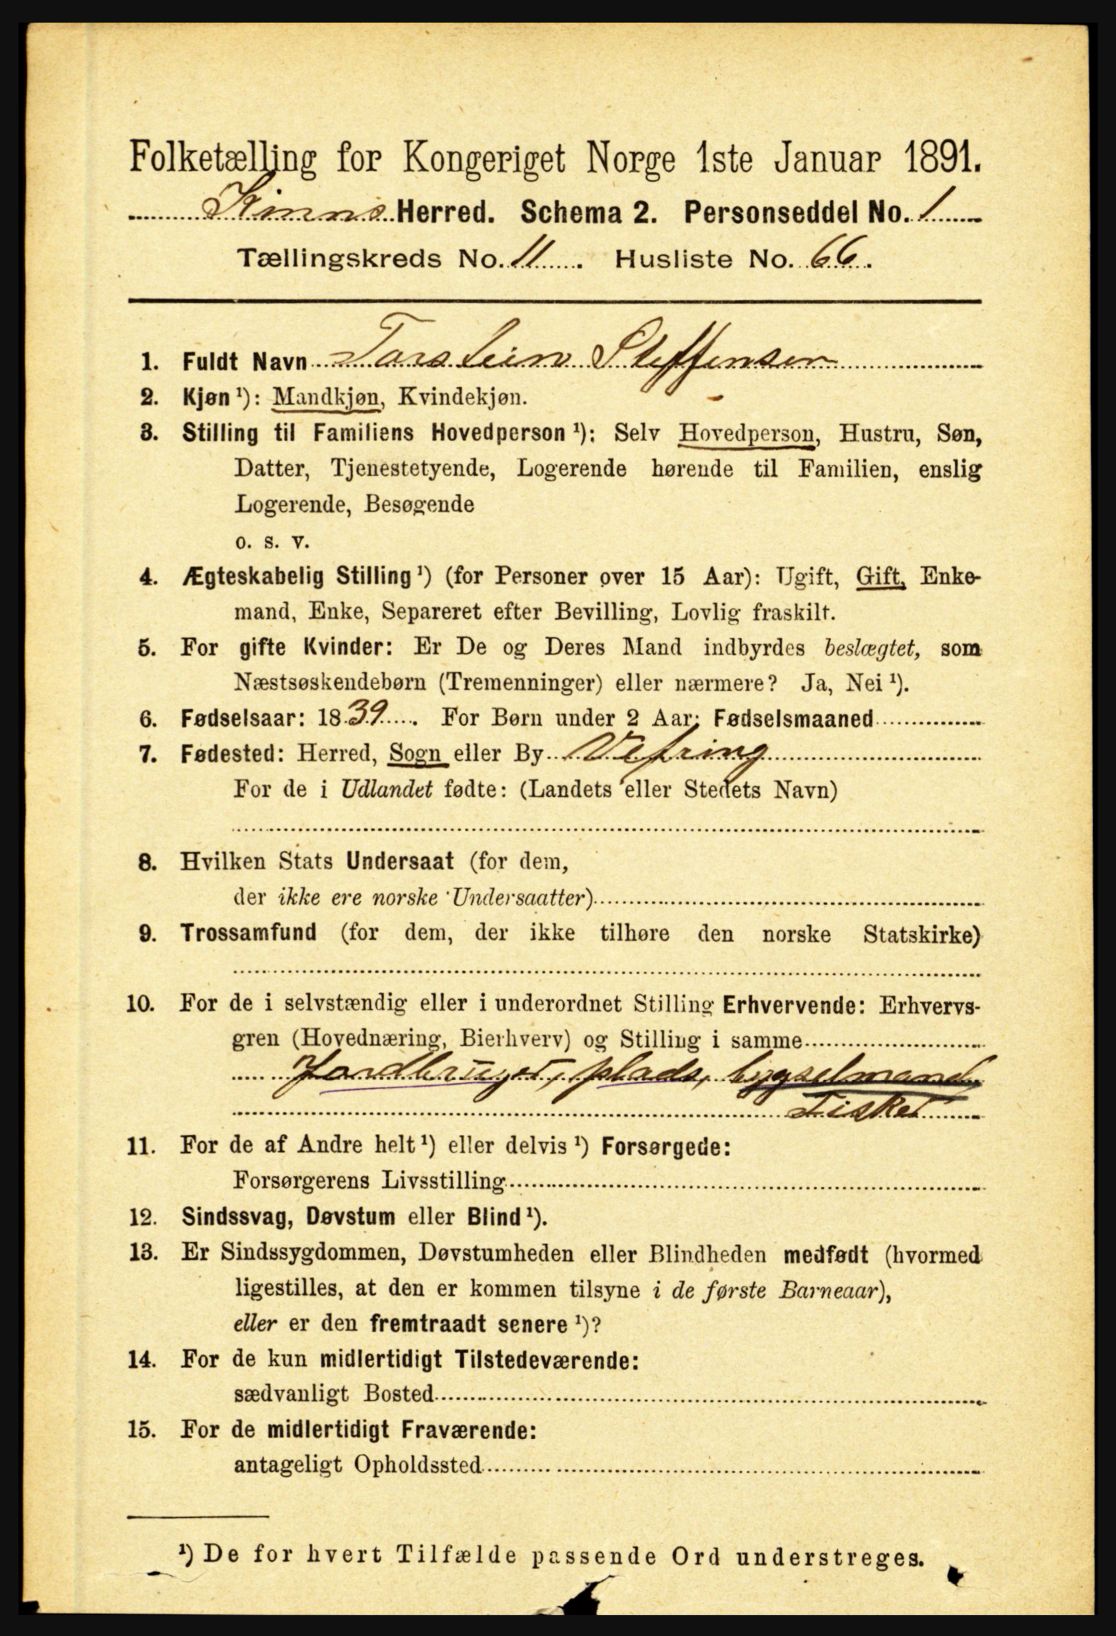 Folketælling for Kongeriget Norge 1ste Januar 1891.
Kinns Herred. Schema 2. Personseddel No. 1
Tællingskreds No. 11. Husliste No. 66.
1. Fuldt Navn Torstein Steffensen
2. Kjøn ¹): Mandkjøn, Kvindekjøn.
3. Stilling til Familiens Hovedperson ¹): Selv Hovedperson, Hustru, Søn,
Datter, Tjenestetyende, Logerende hørende til Familien, enslig
Logerende, Besøgende
o. s. v.
4. Ægteskabelig Stilling ¹) (for Personer over 15 Aar): Ugift, Gift, Enke-
mand, Enke, Separeret efter Bevilling, Lovlig fraskilt.
5. For gifte Kvinder: Er De og Deres Mand indbyrdes beslægtet, som
Næstsøskendebørn (Tremenninger) eller nærmere? Ja, Nei ¹).
6. Fødselsaar: 1839. For Børn under 2 Aar: Fødselsmaaned
7. Fødested: Herred, Sogn eller By Vefring
For de i Udlandet fødte: (Landets eller Stedets Navn)
8. Hvilken Stats Undersaat (for dem,
der ikke ere norske Undersaatter)
9. Trossamfund (for dem, der ikke tilhøre den norske Statskirke)
10. For de i selvstændig eller i underordnet Stilling Erhvervende: Erhvervs-
gren (Hovednæring, Bierhverv) og Stilling i samme
Jordbruger, plads, bygselmand,
Fisker
11. For de af Andre helt ¹) eller delvis ¹) Forsørgede:
Forsørgerens Livsstilling
12. Sindssvag, Døvstum eller Blind ¹).
13. Er Sindssygdommen, Døvstumheden eller Blindheden medfødt (hvormed
ligestilles, at den er kommen tilsyne i de første Barneaar),
eller er den fremtraadt senere ¹)?
14. For de kun midlertidigt Tilstedeværende:
sædvanligt Bosted
15. For de midlertidigt Fraværende:
antageligt Opholdssted
¹) De for hvert Tilfælde passende Ord understreges.